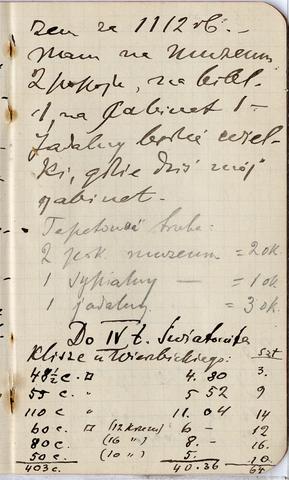 zem za 1112 rb. –
Mam na muzeum
2 pokoje, na bibl.
1, na Gabinet 1 –
Jadalny będzie wiel-
ki, gdzie dziś mój
gabinet.
Tapetować trzeba:
2 pok. muzeum = 2 ok.
1 sypialny — = 1 ok
1 jadalny = 3 ok.
Do IV t. Światowita
Klisze u Wierzbickiego: Szt
48½ c. □ 4. 80 3.
55 c. " 5 52 9
110 c " 11. 04 14
60 c. □ (12 Krzem) 6 – 12
80 c. (16 ") 8. – 16.
50 c. (10 ") 5. 10.
403 c. 40.36 64